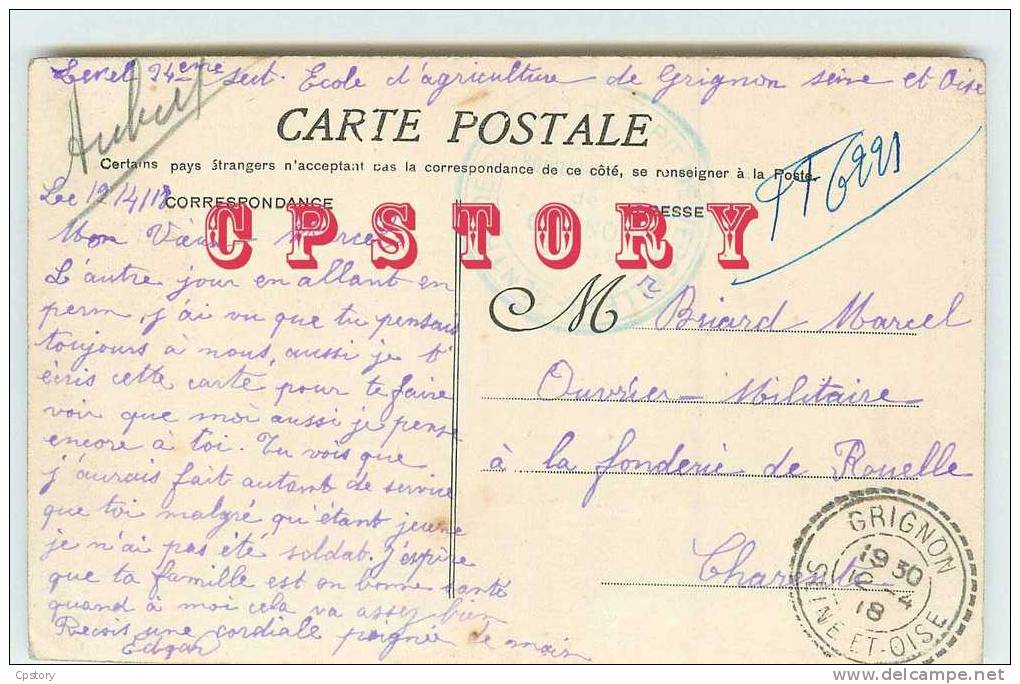 24eme sect. Ecole d'agriculture de Grignon Seine et Oise
CARTE POSTALE
Certains pays étrangers n'acceptant pas la correspondance de ce côté, se renseigner à la Poste.
Le 12/4/18
CORRESPONDANCE
ADRESSE
CPSTORY
Mon Vieux Marcel
L'autre jour en allant en
perm, j'ai vu que tu pensais
toujours à nous, aussi je t'
écris cette carte pour te faire
voir que moi aussi je pense
encore à toi. Tu vois que
j'aurais fait autant de service
que toi malgré qu'étant jeune
je n'ai pas été soldat. J'espère
que ta famille est en bonne santé
quand à moi cela va assez bien
Reçois une cordiale poignée de main
Edgar
M Briard Marcel
Ouvrier Militaire
à la fonderie de Rouelle
Charente
GRIGNON
19 30
12-4
18
SEINE-ET-OISE
Cpstory
delcampe.net